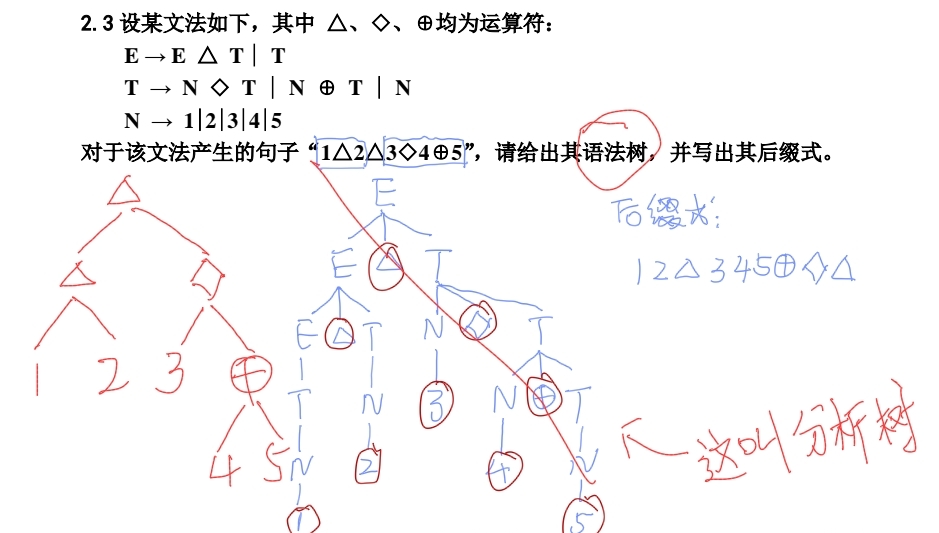 2.3 设某文法如下，其中 △、◇、⊕均为运算符：
E → E △ T | T
T → N ◇ T | N ⊕ T | N
N → 1|2|3|4|5
对于该文法产生的句子“1△2△3◇4⊕5”，请给出其语法树，并写出其后缀式。
△
△ ◇
1 2 3 ⊕
4 5
E
E △ T
E △ T N ◇ T
T N 3 N ⊕ T
N 2 4 N
1 5
后缀式:
12△345⊕◇△
这叫分析树